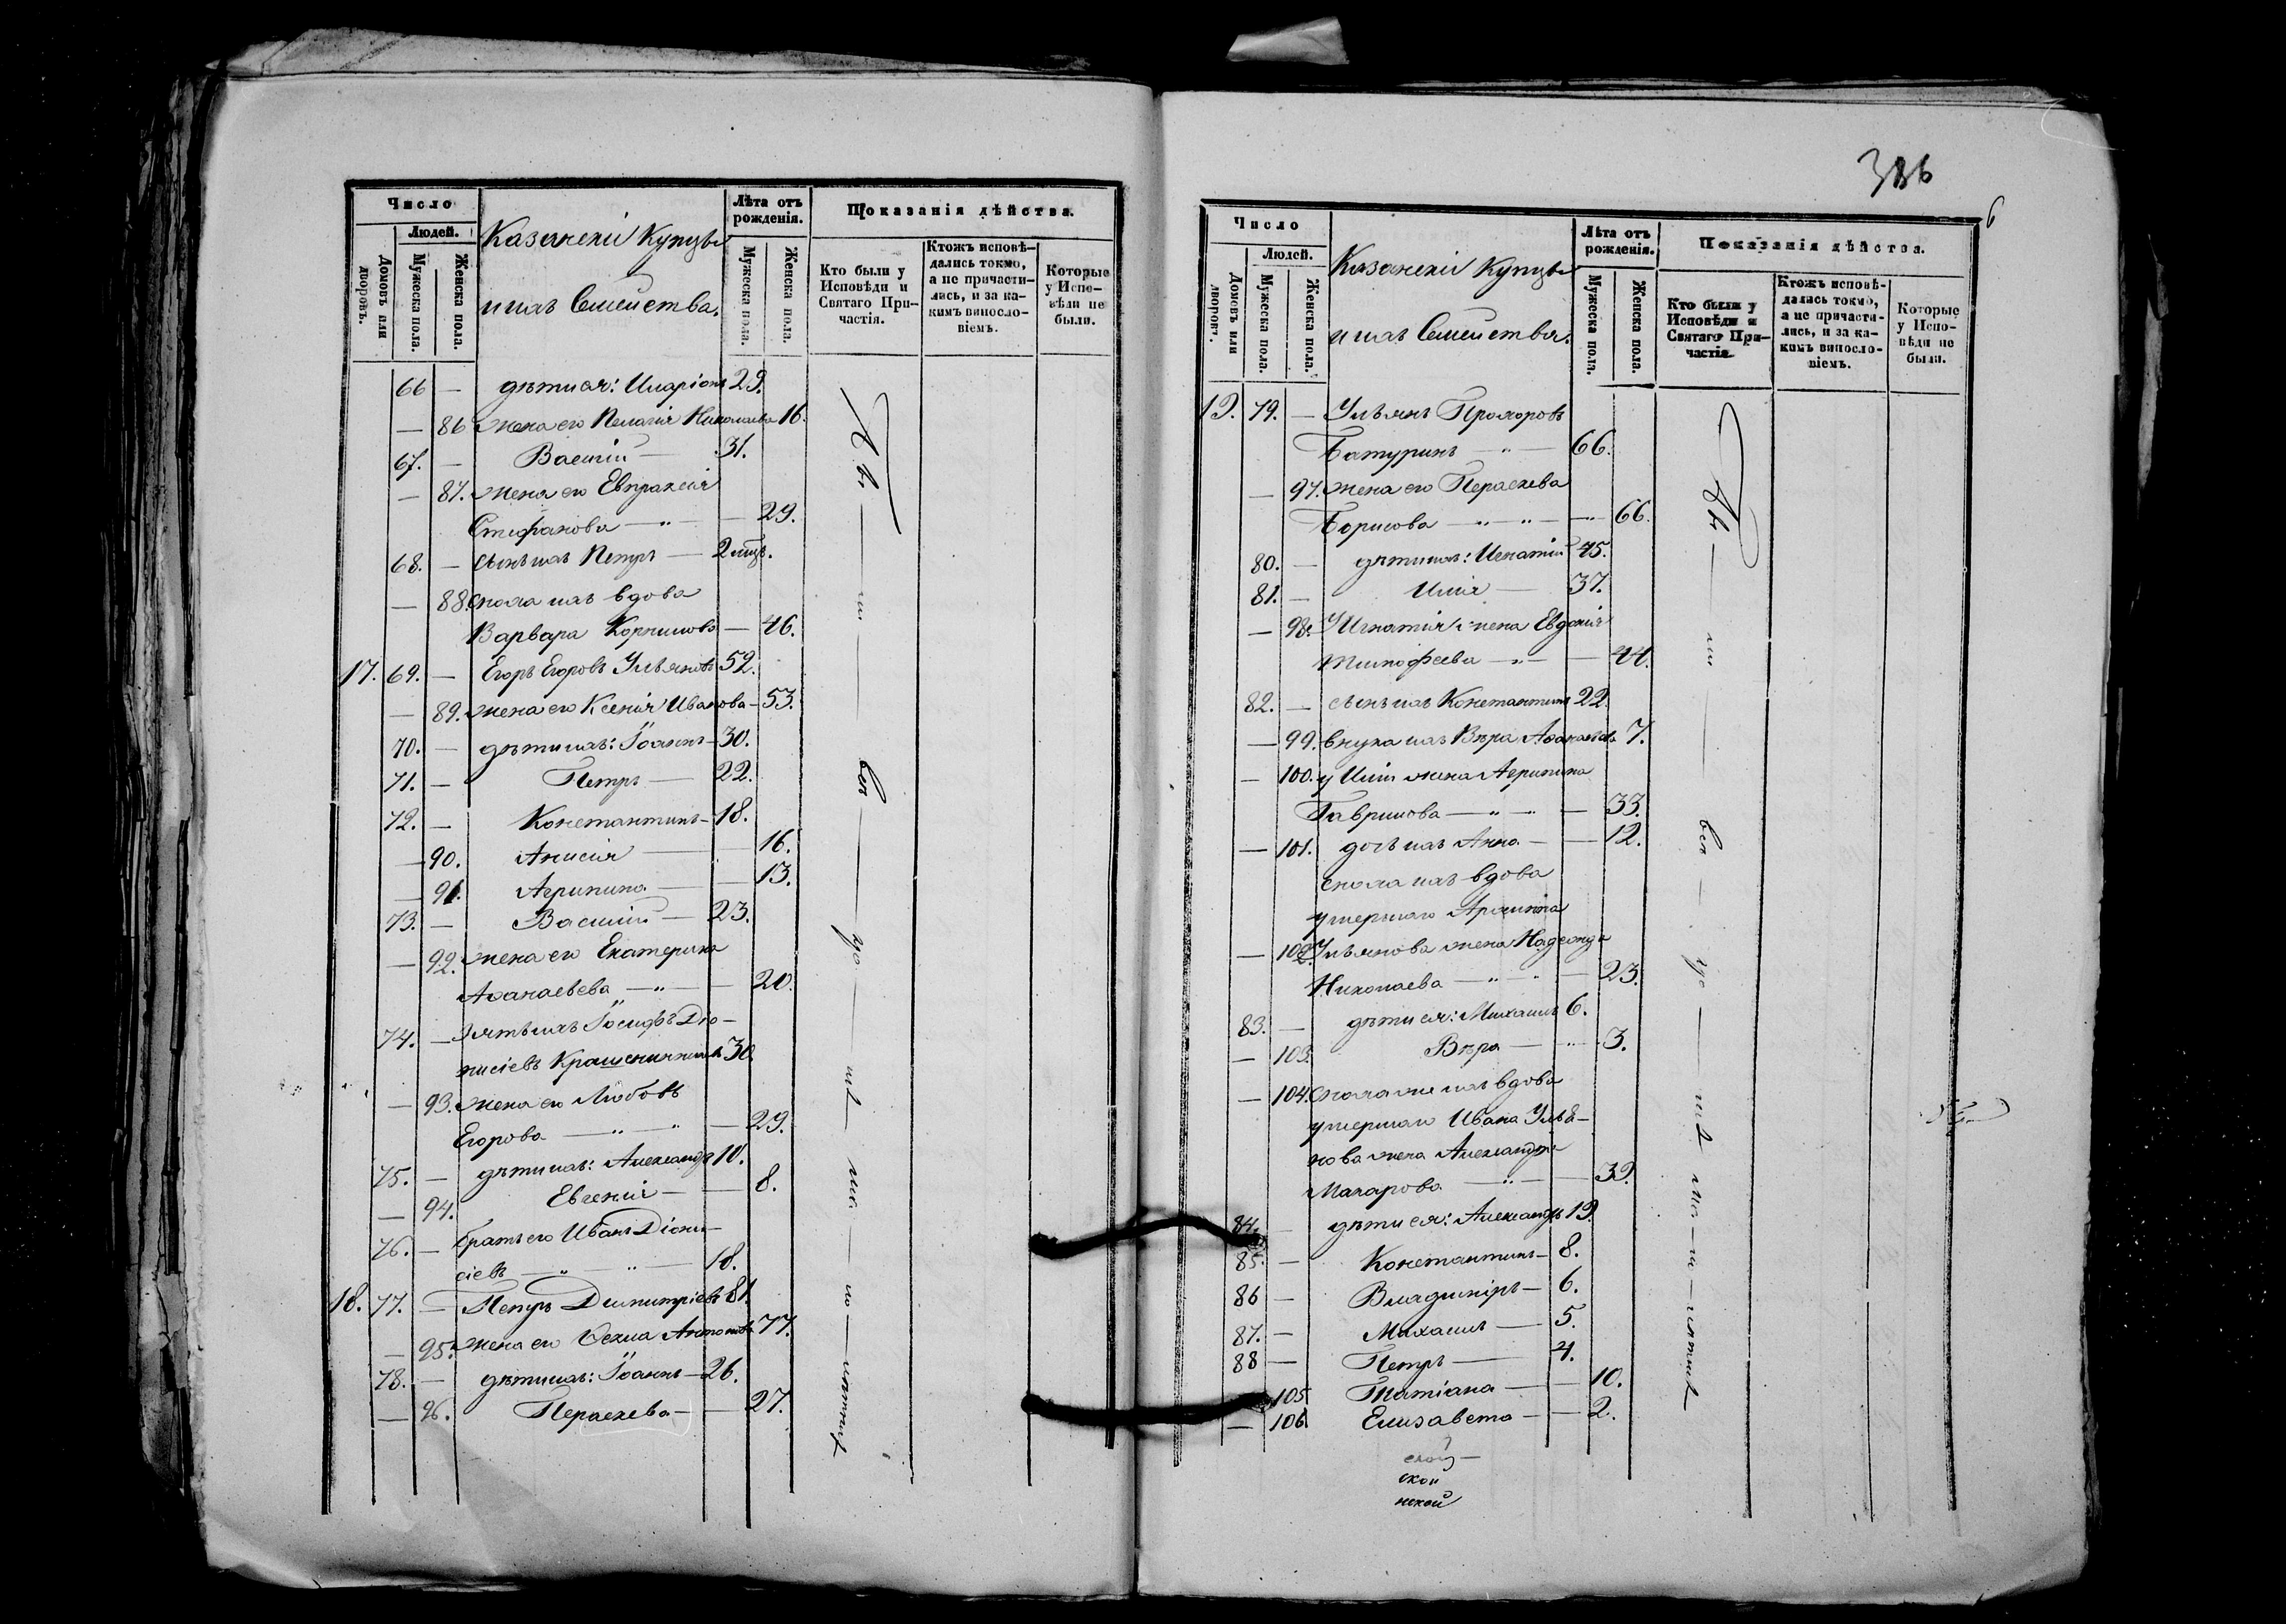 Число
Людей.
Домовъ или дворовъ.
Мужеска пола.
Женска пола.
Казанскіи Купцы
и ихъ Семейства.
Лѣта отъ рожденія.
Мужеска пола.
Женска пола.
Показанія дѣйства.
Кто были у Исповѣди и Святаго Причастія.
Ктожъ исповѣдались токмо, а не причастились, и за какимъ винословіемъ.
Которые у Исповѣди не были.
66 — дѣти ея: Иларіонъ 29.
— 86 жена его Пелагія Николаева 16.
67. — Василій — 31.
— 87. жена его Евпраксія
Стефанова — „ — 29.
68. — сынъ ихъ Петръ — 2 мѣс.
— 88. сноха ихъ вдова
Варвара Корнилова — 46.
17. 69. — Егоръ Егоровъ Ульяновъ 52.
— 89. жена его Ксенія Иванова — 53.
70. — дѣти ихъ: Іоаннъ — 30.
71. — Петръ — 22.
72. — Константинъ — 18.
— 90. Анисія — 16.
— 91. Агрипина — 13.
73. — Василій — 23.
— 92. жена его Екатерина
Аѳанасьева — „ — 20.
74. — Зять ихъ Іосифъ Діо-
нисіевъ Крашенинниковъ 30.
— 93. жена его Любовь
Егорова — „ „ — 29.
75. — дѣти ихъ: Александръ 10.
— 94. Евгенія — 8.
76. — братъ его Иванъ Діони-
сіевъ — „ — „ — 18.
18. 77. — Петръ Димитріевъ 81.
— 95. жена его Ѳекла Антонова 77.
78. — дѣти ихъ: Іоаннъ — 26.
— 96. Параскева — 27.
386
6
Число
Людей.
Домовъ или дворовъ.
Мужеска пола.
Женска пола.
Казанскіи Купцы
и ихъ Семейства.
Лѣта отъ рожденія.
Мужеска пола.
Женска пола.
Показанія дѣйства.
Кто были у Исповѣди и Святаго Причастія.
Ктожъ исповѣдались токмо, а не причастились, и за какимъ винословіемъ.
Которые у Исповѣди не были.
19. 79. — Ульянъ Прохоровъ
Батуринъ — „ — 66.
— 97. жена его Параскева
Борисова — „ — „ — 66.
80. — дѣти ихъ: Игнатій 45.
81. — Илія — 37.
— 98. У Игнатія жена Евдокія
Тимофеева — „ — 44.
82. — сынъ ихъ Константинъ 22.
— 99. внука ихъ Вѣра Аѳанасьева 7.
— 100. у Иліи жена Агрипина
Гаврилова — „ — 33.
— 101. дочь ихъ Анна — 12.
сноха ихъ вдова
умершаго
— 102. Ульянова жена Надежда
Николаева — „ — 23.
83. — дѣти ея: Михаилъ 6.
— 103. Вѣра — „ 3.
— 104. сноха же ихъ вдова
умершаго Ивана Улья-
нова жена Александра
Макарова — „ — 39.
84. — дѣти ея: Александръ 19.
85. — Константинъ — 8.
86 — Владиміръ — 6.
87. — Михаилъ — 5.
88 — Петръ — 4.
— 105. Татіана — 10.
— 106. Елизавета — 2.
ской
ской